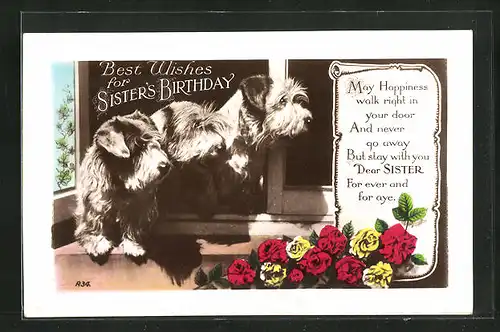 Best Wishes
for
SISTER'S BIRTHDAY
May Happiness
walk right in
your door
And never
go away
But stay with you
Dear SISTER
For ever and
for aye.
A34.